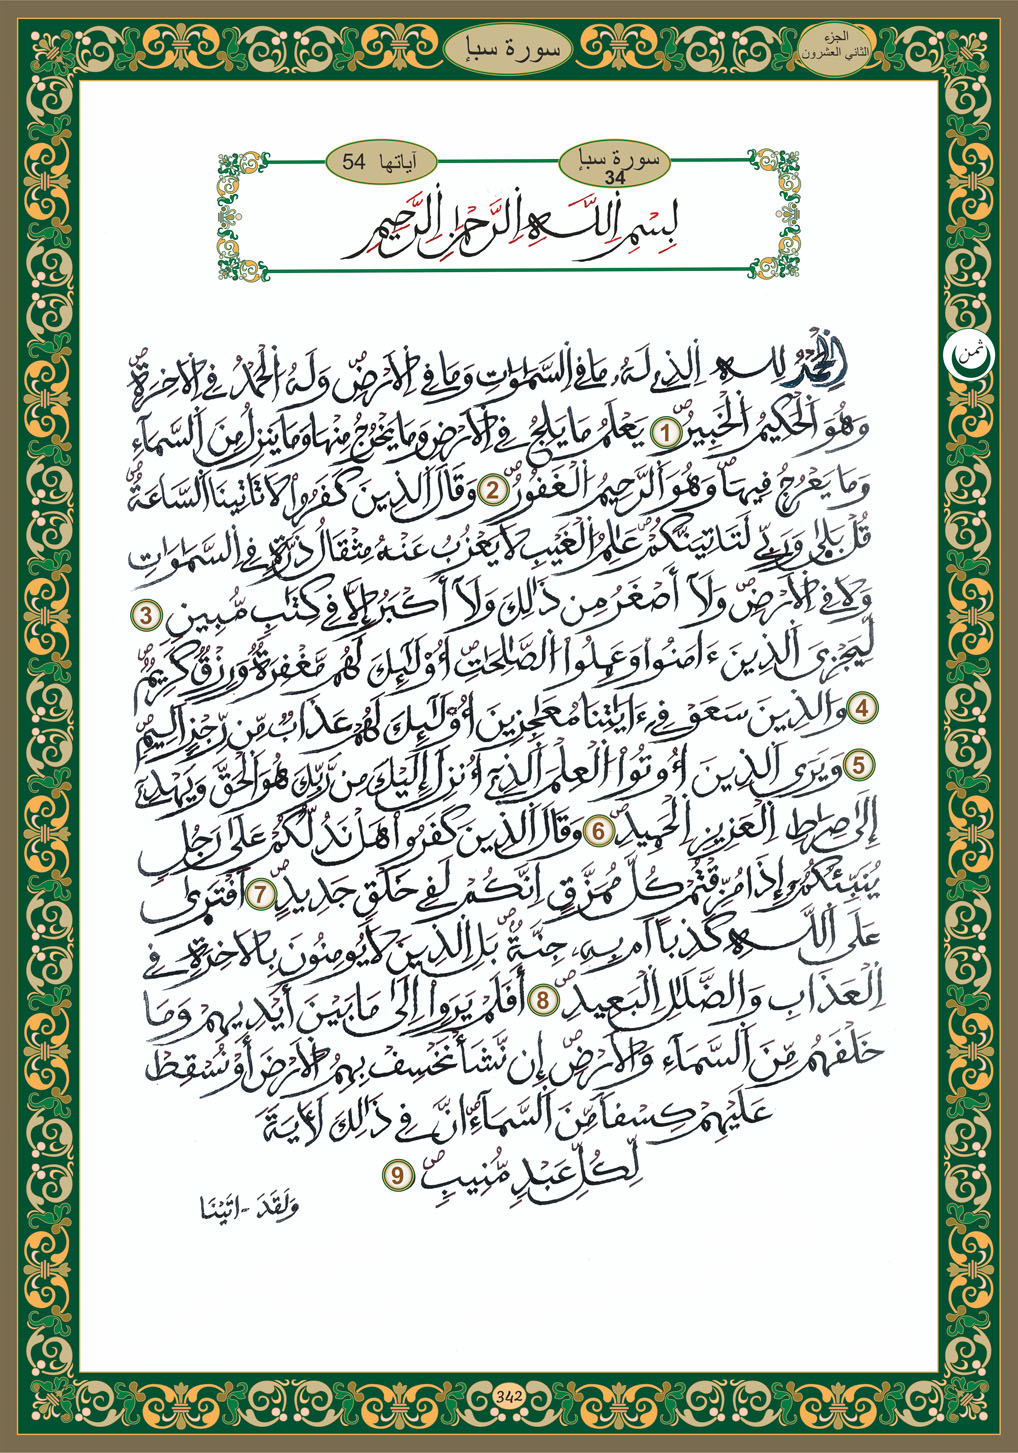 الجزء
الثاني العشرون
سورة سبإ
سورة سبإ
34
آياتها 54
بِسْمِ اِللَّهِ اِلرَّحْمٰنِ اِلرَّحِيمِ
ثمن
اِلْحَمْدُ لِلهِ اِلذِے لَهُۥ مَا فِے اِلسَّمَٰوَٰتِ وَمَا فِے اِلَارْضِۖ وَلَهُ اُلْحَمْدُ فِے اِلَاخِرَةِۖ
وَهُوَ اَلْحَكِيمُ اُلْخَبِيرُۖ 1 يَعْلَمُ مَا يَلِجُ فِے اِلَارْضِ وَمَا يَخْرُجُ مِنْهَا وَمَا يَنزِلُ مِنَ اَلسَّمَآءِ
وَمَا يَعْرُجُ فِيهَاۖ وَهُوَ اَلرَّحِيمُ اُلْغَفُورُۖ 2 وَقَالَ اَلذِينَ كَفَرُواْ لَا تَاتِينَا اَلسَّاعَةُۖ
قُلْ بَلٰي وَرَبِّے لَتَاتِيَنَّكُمْۖ عَٰلِمُ اُلْغَيْبِ لَا يَعْزُبُ عَنْهُ مِثْقَالُ ذَرَّةٖ فِے اِلسَّمَٰوَٰتِ
وَلَا فِے اِلَارْضِۖ وَلَآ أَصْغَرُ مِن ذَٰلِكَ وَلَآ أَكْبَرُ إِلَّا فِے كِتَٰبٖ مُّبِينٖ 3
لِّيَجْزِيَ اَلذِينَ ءَامَنُواْ وَعَمِلُواْ اُلصَّٰلِحَٰتِۖ أُوْلَٰٓئِكَ لَهُم مَّغْفِرَةٞ وَرِزْقٞ كَرِيمٞۖ
4 وَالذِينَ سَعَوْ فِےٓ ءَايَٰتِنَا مُعَٰجِزِينَ أُوْلَٰٓئِكَ لَهُمْ عَذَابٞ مِّن رِّجْزٍ اَلِيمٖۖ
5 وَيَرَي اَلذِينَ أُوتُواْ اُلْعِلْمَ اَلذِےٓ أُنزِلَ إِلَيْكَ مِن رَّبِّكَ هُوَ اَلْحَقَّ وَيَهْدِےٓ
إِلَىٰ صِرَٰطِ اِلْعَزِيزِ اِلْحَمِيدِۖ 6 وَقَالَ اَلذِينَ كَفَرُواْ هَلْ نَدُلُّكُمْ عَلَىٰ رَجُلٖ
يُنَبِّئُكُمُۥٓ إِذَا مُزِّقْتُمْ كُلَّ مُمَزَّقٍ اِنَّكُمْ لَفِے خَلْقٖ جَدِيدٍۖ 7 اَفْتَر۪يٰ
عَلَى اَللَّهِ كَذِباً اَم بِهِۦ جِنَّةُۖ بَلِ اِلذِينَ لَا يُومِنُونَ بِالَاخِرَةِ فِے
اِلْعَذَابِ وَالضَّلَٰلِ اِلْبَعِيدِۖ 8 أَفَلَمْ يَرَوِاْ اِلَىٰ مَا بَيْنَ أَيْدِيهِمْ وَمَا
خَلْفَهُم مِّنَ اَلسَّمَآءِ وَالَارْضِۖ إِن نَّشَأْ نَخْسِفْ بِهِمُ اُلَارْضَ أَوْ نُسْقِطْ
عَلَيْهِمْ كِسْفاٗ مِّنَ اَلسَّمَآءِۖ انَّ فِے ذَٰلِكَ لَأٓيَةٗ
لِّكُلِّ عَبْدٖ مُّنِيبٖۖ 9
وَلَقَدَ اتَيْنَا
342